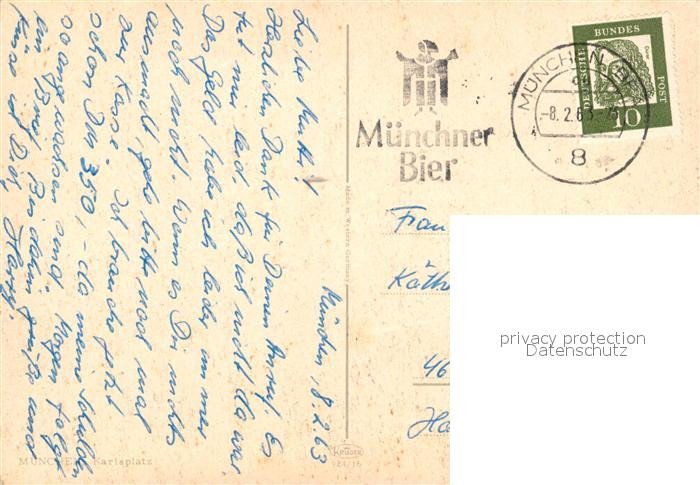 München, 8.2.63
Liebe Mutti!
Herzlichen Dank für Deinen Anruf. Es
tut mir leid, daß ich nicht da war.
Das Geld habe ich leider immer
noch nicht. Wenn es Dir nichts
ausmacht, gehe bitte noch mal
zur Kasse. Ich brauche jetzt
schon DM 350,- da meine Schulden
so angewachsen sind. Morgen folgt
ein Brief. Bis dahin grüßt und
küsst Dich
MÜNCHEN, Karlsplatz
Made in Western Germany
KRÜGER
924/16
Münchner
Bier
MÜNCHEN
-8.2.63-
8
DEUTSCHE BUNDES POST
Dürer
10
Frau
Käth
46
Ha
privacy protection
Datenschutz